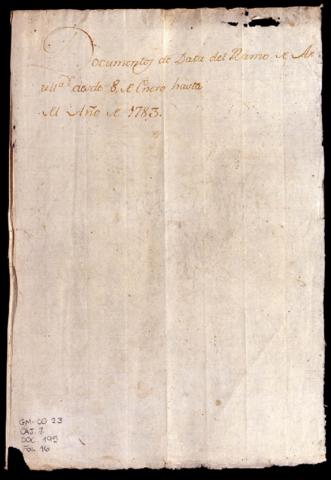 Documentos de Data del Ramo de Ar
till.ª desde 8, de Enero hasta
el Año de 1783.
GM-CO 23
CAJ. 7
DOC. 195
FOL. 16